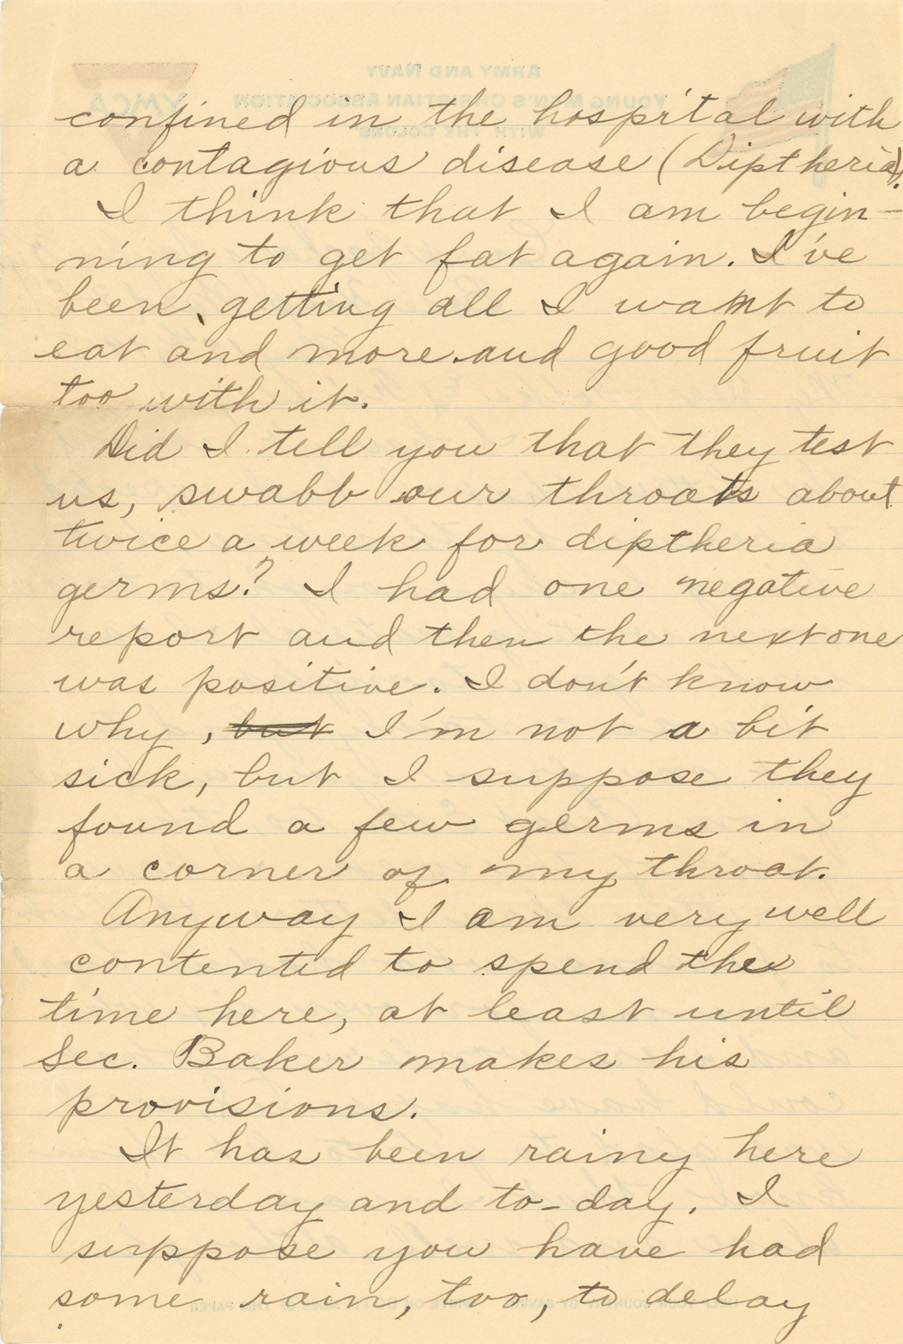 confined in the hospital with
a contagious disease (Diptheria).
I think that I am begin-
ning to get fat again. I've
been getting all I want to
eat and more and good fruit
too with it.
Did I tell you that they test
us, swabb our throats about
twice a week for diptheria
germs? I had one negative
report and then the next one
was positive. I don't know
why, but I'm not a bit
sick, but I suppose they
found a few germs in
a corner of my throat.
Anyway I am very well
contented to spend the
time here, at least until
Sec. Baker makes his
provisions.
It has been rainy here
yesterday and to-day. I
suppose you have had
some rain, too, to delay
ARMY AND NAVY
YOUNG MEN'S CHRISTIAN ASSOCIATION
"WITH THE COLORS"
YMCA